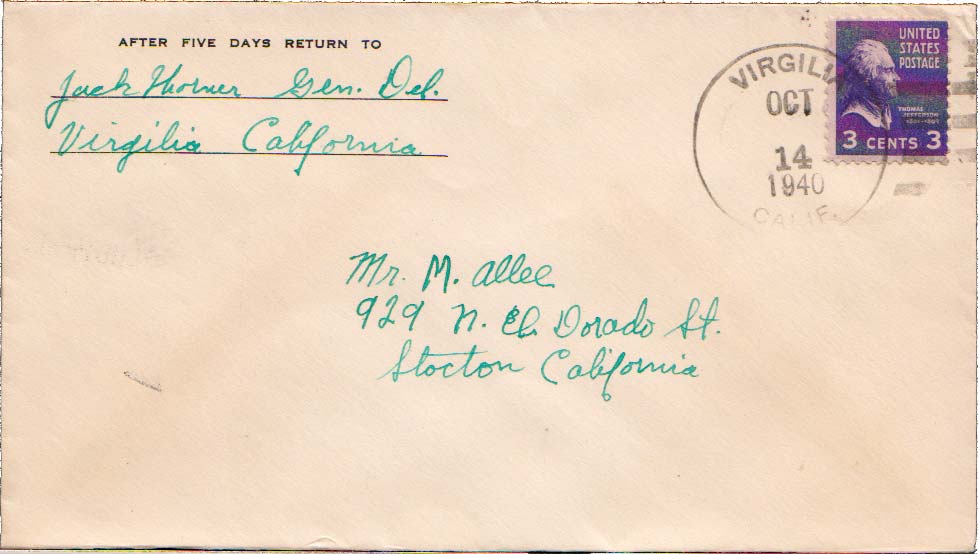 AFTER FIVE DAYS RETURN TO
Jack Horner Gen. Del.
Virgilia California
VIRGILIA
OCT
14
1940
CALIF.
UNITED
STATES
POSTAGE
THOMAS
JEFFERSON
1801-1809
3 CENTS 3
Mr. M. Allee
929 N. El Dorado St.
Stocton California